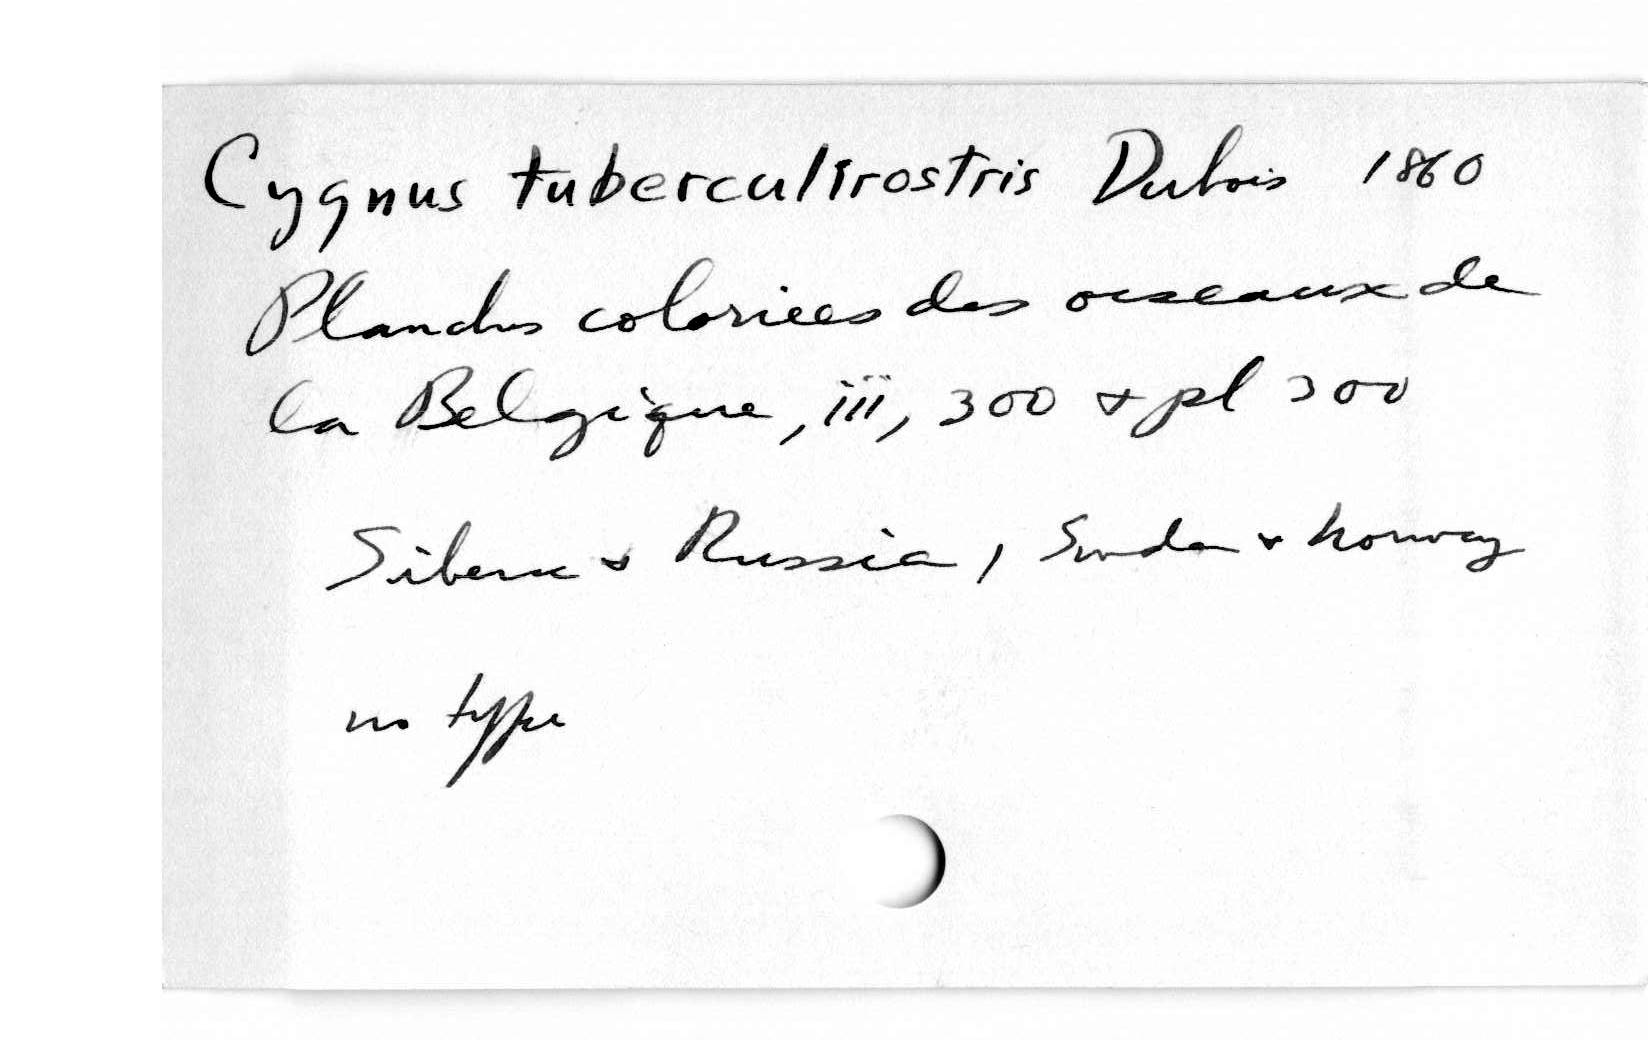 Cygnus tuberculirostris Dubois 1860
Planches coloriees des oiseaux de
la Belgique, iii, 300 & pl 300
Siberia & Russia, Sweden & Norway
no type